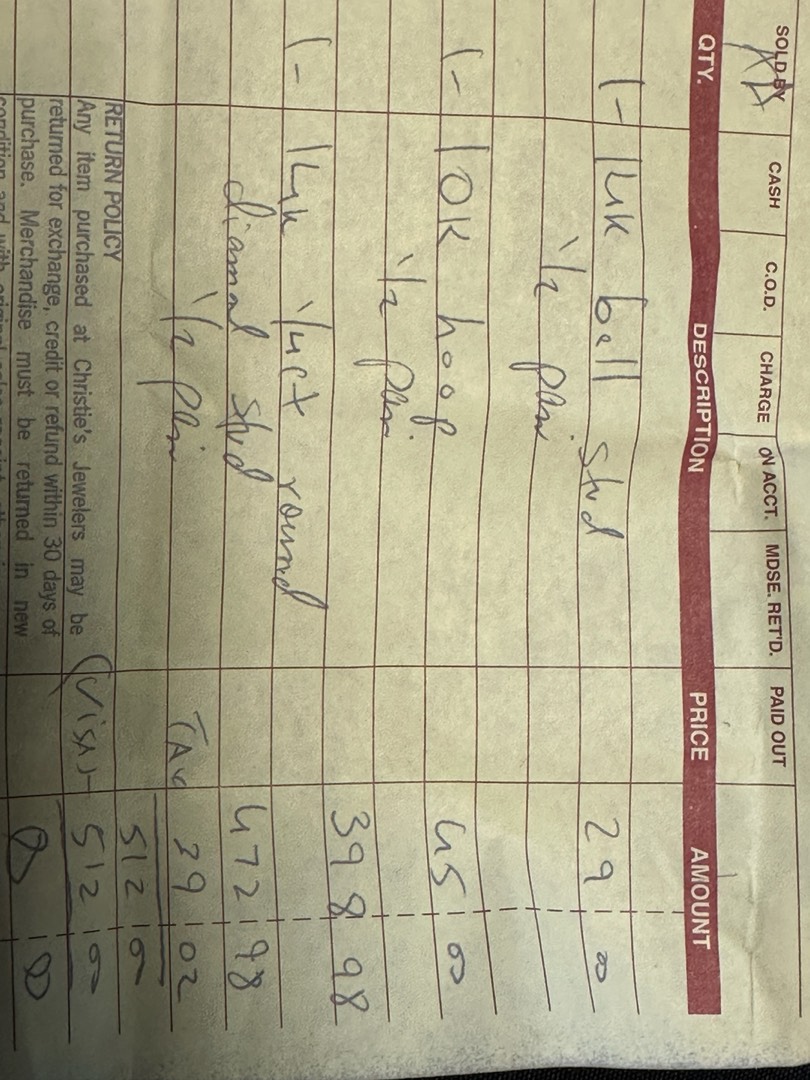 SOLD BY CASH C.O.D. CHARGE ON ACCT. MDSE. RET'D. PAID OUT
QTY. DESCRIPTION PRICE AMOUNT
1- 14k ball stud 29 00
1/2 pair
1- 10k hoop 45 00
1/2 pair
398 98
1- 14k 1/4ct round
diamond stud 472 98
1/2 pair TAX 39 02
512 00
RETURN POLICY
(VISA)- 512 00
Any item purchased at Christie's Jewelers may be
returned for exchange, credit or refund within 30 days of
purchase. Merchandise must be returned in new